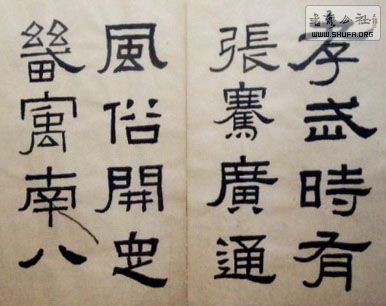 孝武時有
張騫廣通
風俗開定
畿寓南八
WWW.SHUFA.ORG